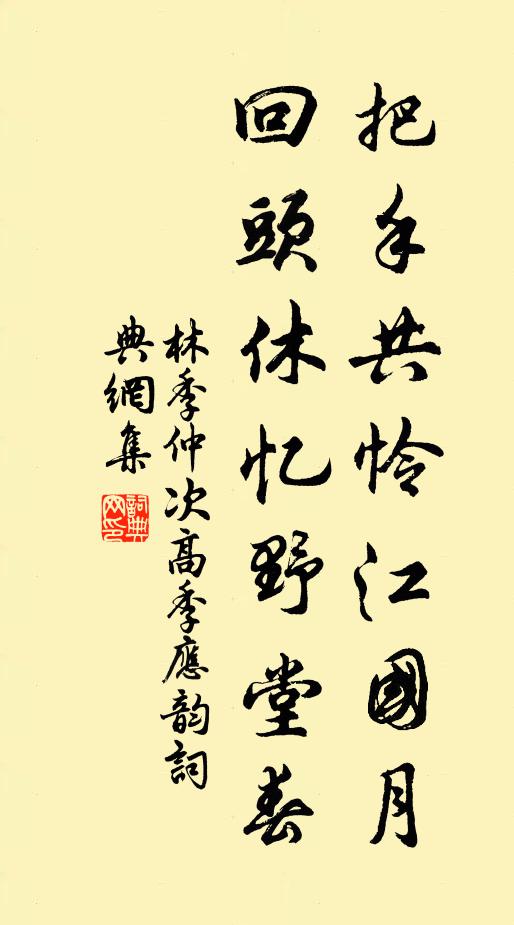 把手共怜江國月
回頭休忆野堂春
林季仲次高季應韵詞
典網集
詞典网印